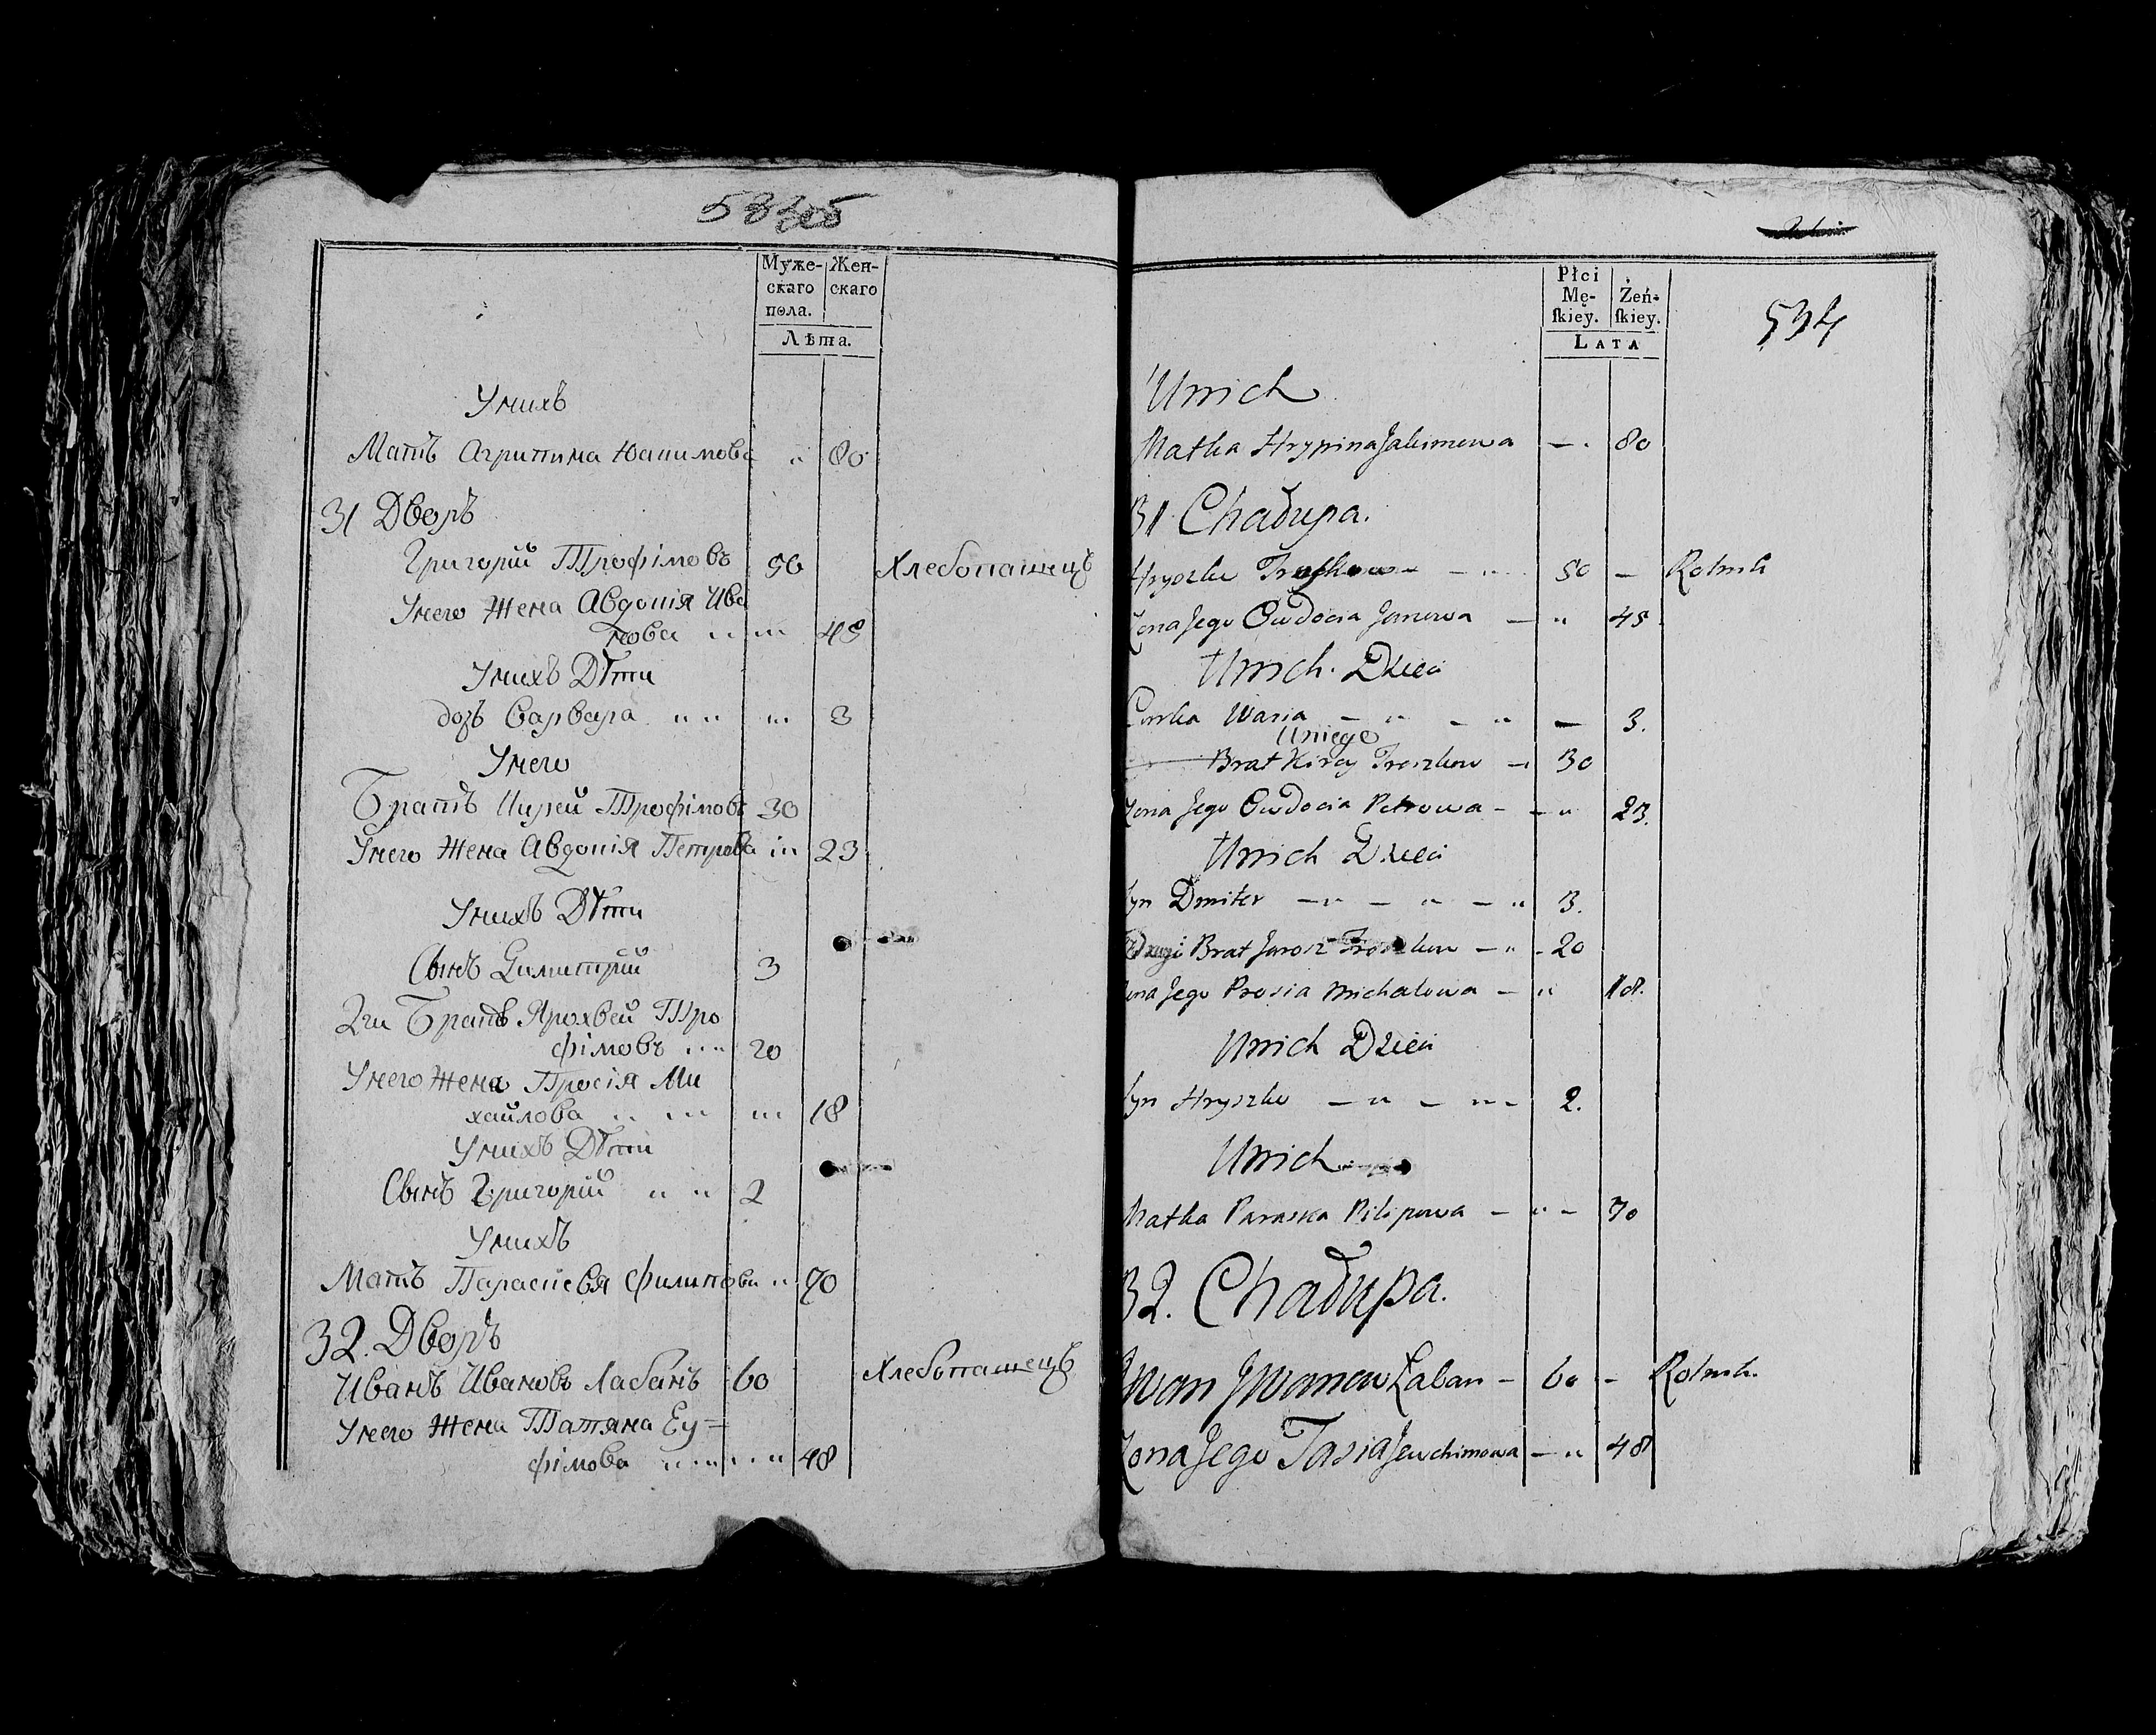 Муже-
скаго
пола.
Жен-
скаго
Лѣта.
Унихъ
Мать Агрипина Юхимова 80
31 Дворъ
Григорій Трофімовъ 50 Хлебопашецъ
Унего Жена Авдотія Ива
нова 45
Унихъ Дѣти
дочь Варвара 3
Унего
Братъ Кирей Трофімовъ 30
Унего Жена Авдотія Петрова 23
Унихъ Дѣти
Сынъ Димитрій 3
2ги Братъ Ярохвей Тро
фімовъ 20
Унего Жена Просія Ми
хайлова 18
Унихъ Дѣти
Сынъ Григорій 2
Унихъ
Мать Параскевя Филипова 70
32. Дворъ
Иванъ Ивановъ Лабанъ 60 Хлебопашецъ
Унего Жена Татяна Еу=
фімова 48
Płci
Mę-
ſkiey.
Żeń-
ſkiey.
LATA
534
Unich
Matka Hrypina Jakimowa 80
31 Chałupa.
Hryszko 50 Rolnik
Żona Jego Owdocia Janowa 45
Unich Dzieci
Curka Waria 3.
Uniego
Brat Kirey Troszkow 30
Żona Jego Owdocia Petrowa 23.
Unich Dzieci
Syn Dmiter 3.
Drugi Brat Jarosz Troszkow 20
Żona Jego Prosia Michalowa 18.
Unich Dzieci
Syn Hryszko 2.
Unich
Matka Paraska Pilipowa 70
32. Chałupa.
Jwan Jwanow Łaban 60 Rolnik.
Żona Jego Tasia Jewchimowa 48